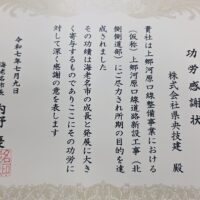 功労感謝状
株式会社県央技建 殿
貴社は上郷河原口線整備事業における
(仮称)上郷河原口線道路新設工事(北
側側道部)にご尽力され所期の目的を達
成されました
その功績は海老名市の成長と発展に大き
く寄与するものでありここにその功労に
対して深く感謝の意を表します
令和七年七月九日
海老名市長 内野 優